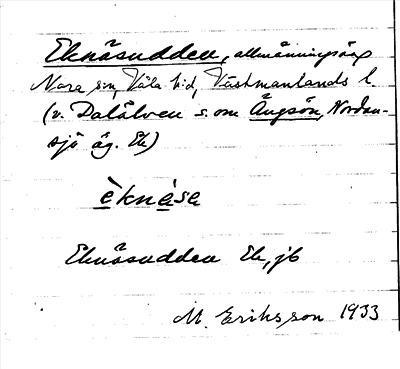 Eknäsudden, allmänningsäng
Nora sn, Våla hd, Västmanlands l.
(v. Dalälven s. om Ängsön, Nordan-
sjö äg. Ek)
èknàsa
Eknäsudden Ek, jb
M. Eriksson 1933